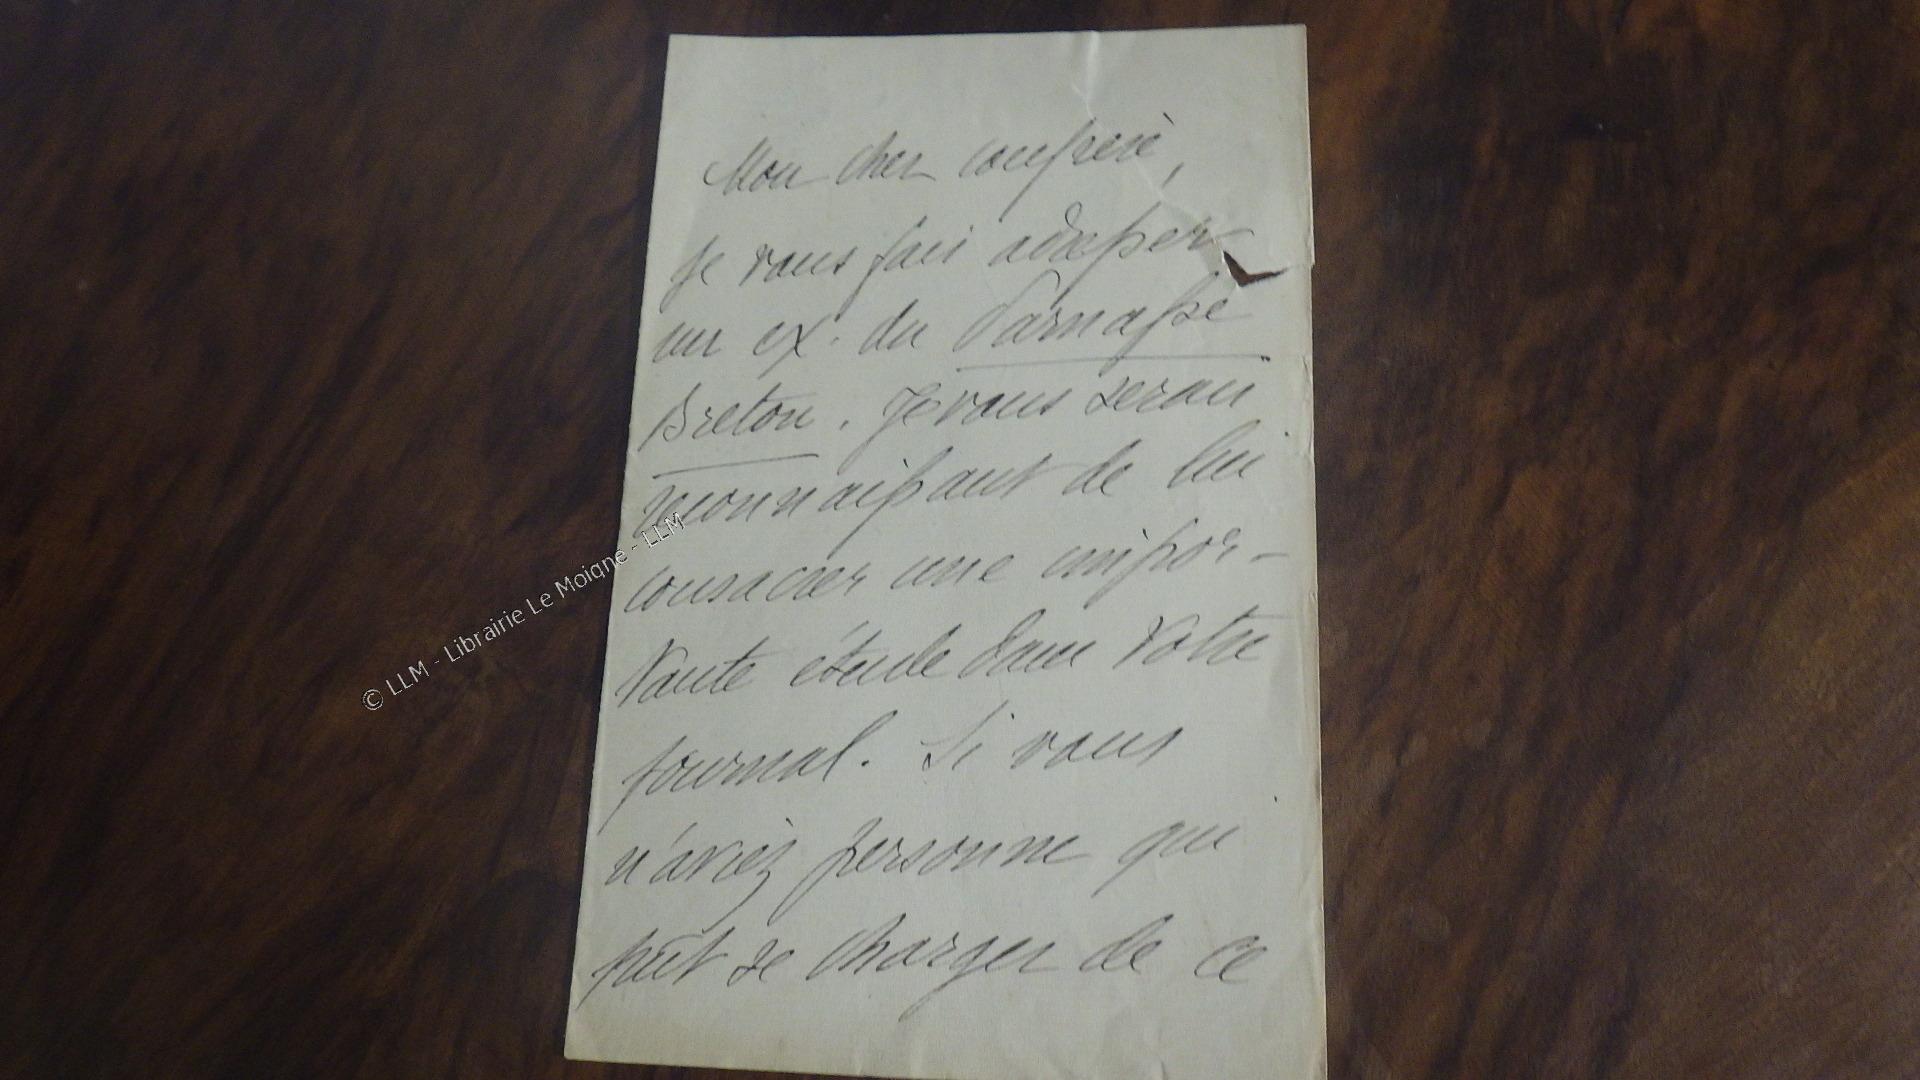 Mon cher confrère,
Je vous fais adresser
un ex. du Parnasse
Breton. Je vous serais
reconnaissant de lui
consacrer une impor-
tante étude dans votre
journal. Si vous
n'aviez personne qui
pût se charger de ce
© LLM - Librairie Le Moigne - LLM